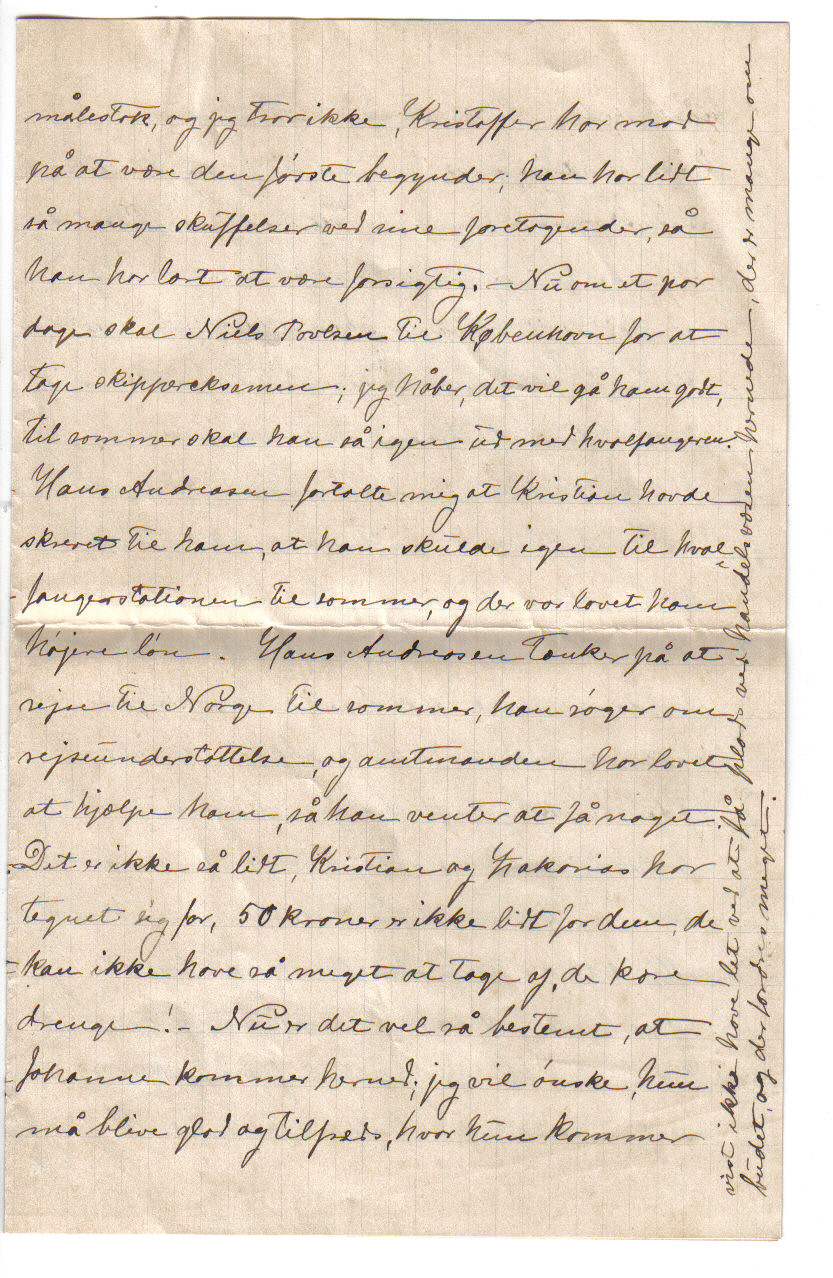 målestok, og jeg tror ikke, Kristoffer har mod
på at være den første begynder; han har lidt
så mange skuffelser ved sine foretagender, så
han har lært at være forsigtig. – Nu om et par
dage skal Niels Povlsen til København for at
tage skippereksamen; jeg håber, det vil gå ham godt,
til sommer skal han så igen ud med hvalfangeren.
Hans Andreasen fortalte mig at Kristian havde
skrevet til ham, at han skulde igen til hval-
fangerstationen til sommer, og der var lovet ham
højere løn. Hans Andreasen tænker på at
rejse til Norge til sommer, han søger om
rejseunderstøttelse, og amtmanden har lovet
at hjælpe ham, så han venter at få noget.
Det er ikke så lidt, Kristian og Zakarias har
tegnet sig for, 50 kroner er ikke lidt for dem, de
kan ikke have så meget at tage af, de kære
drenge! – Nu er det vel så bestemt, at
Johanne kommer herned; jeg vil ønske, hun
må blive glad og tilfreds, hvor hun kommer
vist ikke have let ved at få plads ved handelsvæsen hernede, der er mange om
budet, og der fordres meget.